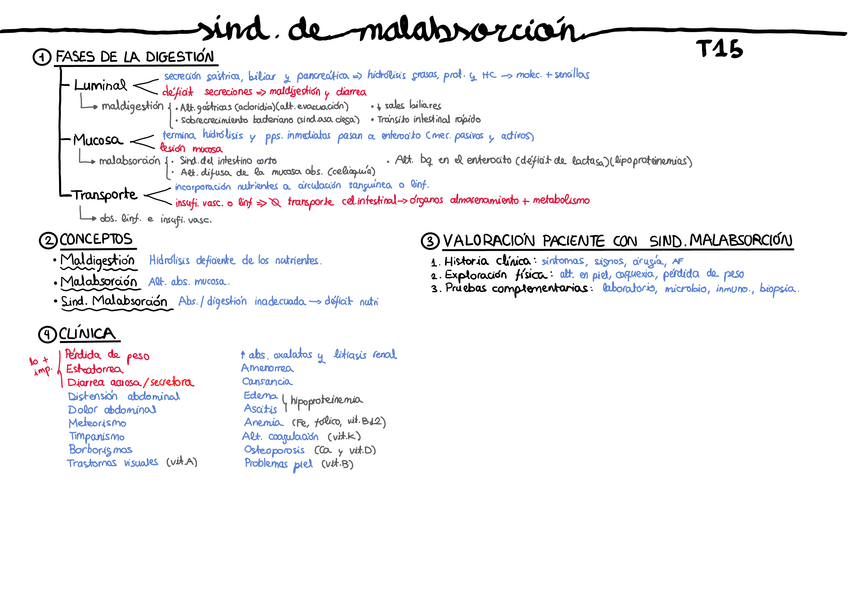 sind. de malabsorción
T15
① FASES DE LA DIGESTIÓN
Luminal
secreción gástrica, biliar y pancreática => hidrólisis grasas, prot. y HC → molec. + sencillas
déficit secreciones => maldigestión y diarrea
maldigestión
· Alt. gástricas (acloridia)(alt. evacuación) · ↓ sales biliares
· Sobrecrecimiento bacteriano (sind. asa ciega) · Tránsito intestinal rápido
Mucosa
termina hidrólisis y pps. inmediatos pasan a enterocito (mec. pasivos y activos)
lesión mucosa
malabsorción
· Sind. del intestino corto · Alt. bq en el enterocito (déficit de lactasa)(lipoproteinemias)
· Alt. difusa de la mucosa abs. (celiaquía)
Transporte
incorporación nutrientes a circulación sanguínea o linf.
insufi. vasc. o linf => transporte cel. intestinal → órganos almacenamiento + metabolismo
obs. linf. e insufi. vasc.
② CONCEPTOS
· Maldigestión Hidrólisis deficiente de los nutrientes.
· Malabsorción Alt. abs. mucosa.
· Sind. Malabsorción Abs./digestión inadecuada → déficit nutri
③ VALORACIÓN PACIENTE CON SIND. MALABSORCIÓN
1. Historia clínica: síntomas, signos, cirugía, AF
2. Exploración física: alt. en piel, caquexia, pérdida de peso
3. Pruebas complementarias: laboratorio, microbio, inmuno., biopsia.
④ CLÍNICA
lo + imp.
Pérdida de peso
Esteatorrea
Diarrea acuosa/secretora
Distensión abdominal
Dolor abdominal
Meteorismo
Timpanismo
Borborigmos
Trastornos visuales (vit.A)
↑ abs. oxalatos y litiasis renal
Amenorrea
Cansancia
Edema
Ascitis
hipoproteinemia
Anemia (Fe, fólico, vit.B12)
Alt. coagulación (vit.K)
Osteoporosis (Ca y vit.D)
Problemas piel (vit.B)